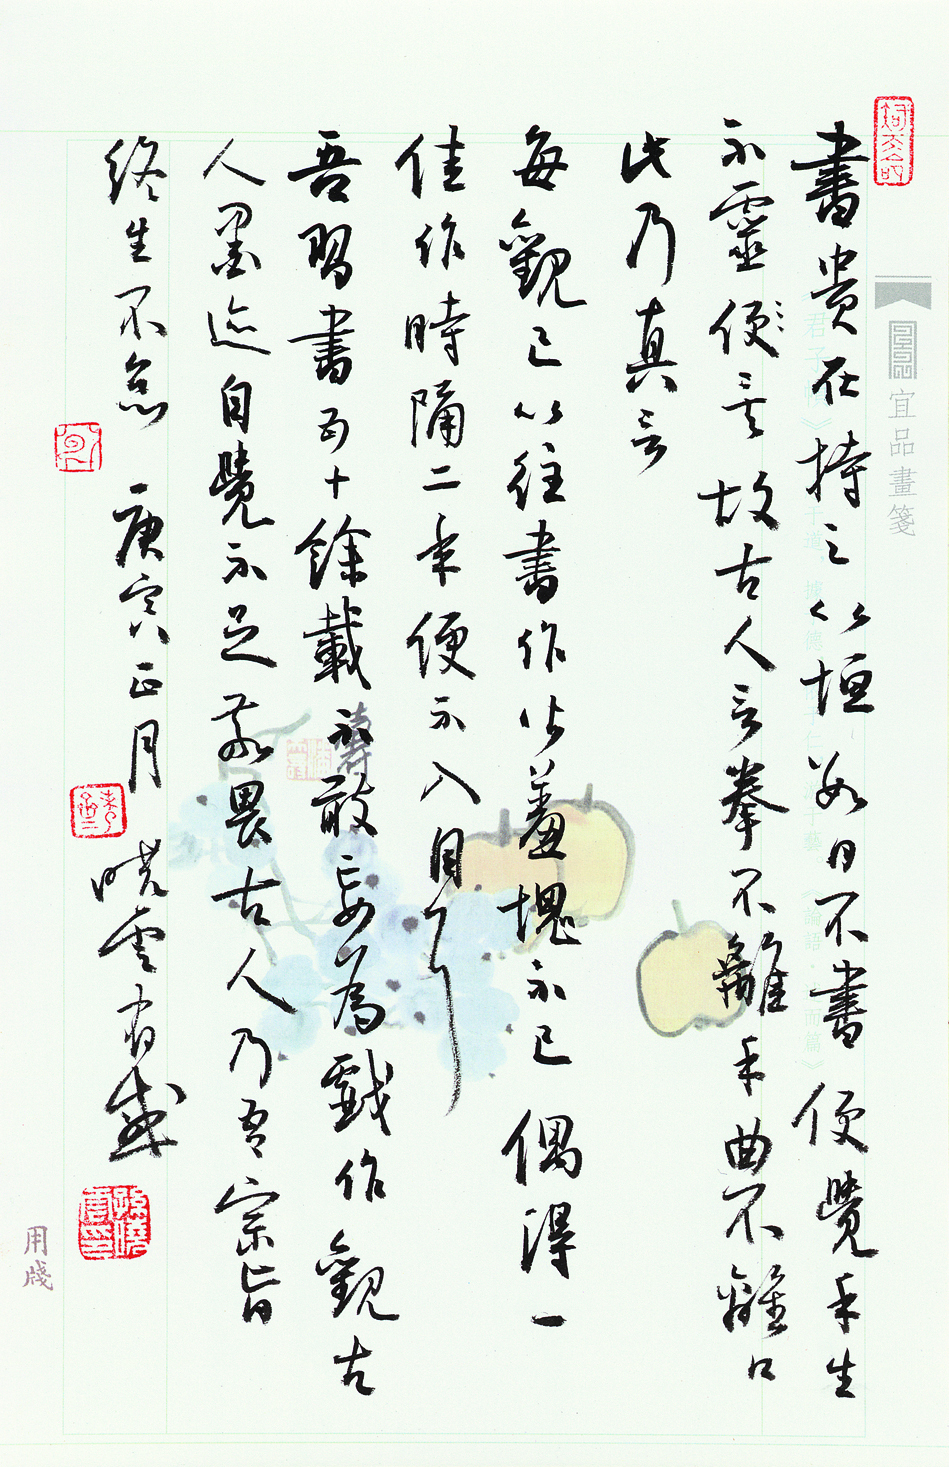 宜品畫箋
書貴在持之以恒數日不書便覺手生
不靈便矣故古人言拳不離手曲不離口
此乃真言
每觀己以往書作羞愧不已偶得一
佳作時隔二年便不入目了
吾習書五十餘載不敢妄為戲作觀古
人墨迹自覺不足敬畏古人乃吾宗旨
終生不怠 庚寅正月 曉雲有感
孫曉雲印
用牋